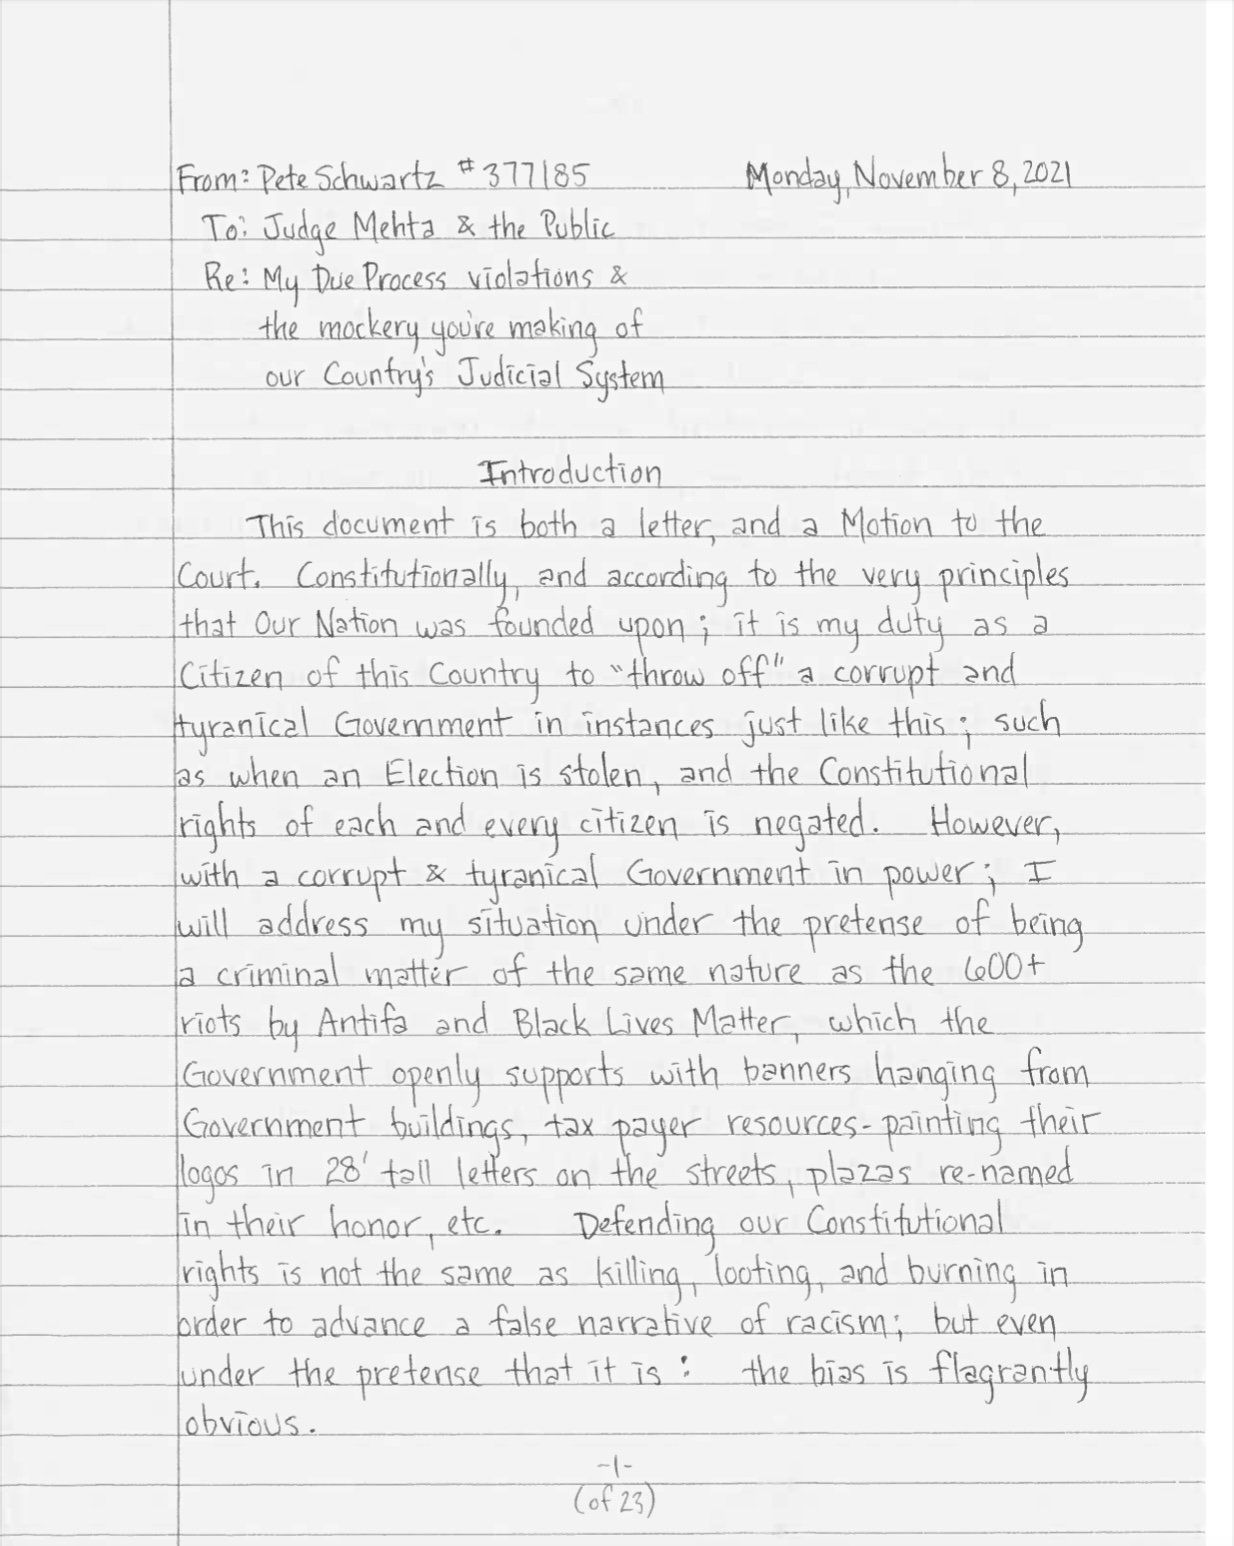 From: Pete Schwartz #377185 Monday, November 8, 2021
To: Judge Mehta & the Public
Re: My Due Process violations &
the mockery you're making of
our Country's Judicial System
Introduction
This document is both a letter, and a Motion to the
Court. Constitutionally, and according to the very principles
that Our Nation was founded upon; it is my duty as a
Citizen of this Country to "throw off" a corrupt and
tyranical Government in instances just like this; such
as when an Election is stolen, and the Constitutional
rights of each and every citizen is negated. However,
with a corrupt & tyranical Government in power; I
will address my situation under the pretense of being
a criminal matter of the same nature as the 600+
riots by Antifa and Black Lives Matter, which the
Government openly supports with banners hanging from
Government buildings, tax payer resources-painting their
logos in 28' tall letters on the streets, plazas re-named
in their honor, etc. Defending our Constitutional
rights is not the same as killing, looting, and burning in
order to advance a false narrative of racism; but even
under the pretense that it is: the bias is flagrantly
obvious.
-1-
(of 23)